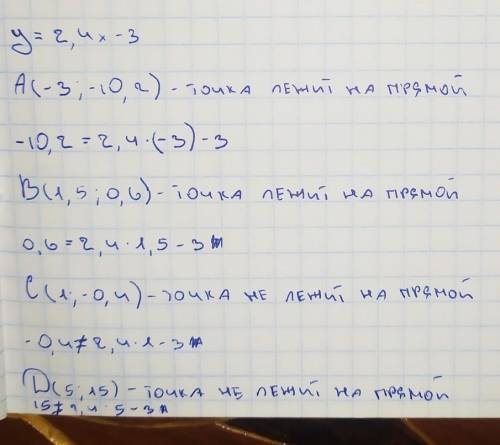 y = 2,4x - 3
A(-3; -10,2) - точка лежит на прямой
-10,2 = 2,4 · (-3) - 3
B(1,5; 0,6) - точка лежит на прямой
0,6 = 2,4 · 1,5 - 3
C(1; -0,4) - точка не лежит на прямой
-0,4 ≠ 2,4 · 1 - 3
D(5; 15) - точка не лежит на прямой
15 ≠ 2,4 · 5 - 3